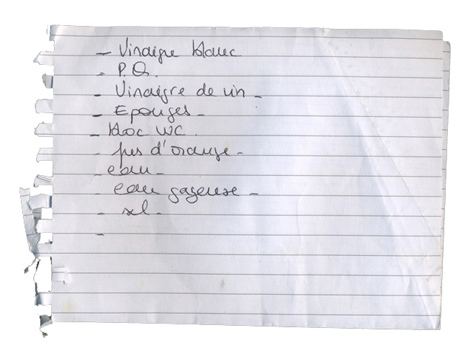 - Vinaigre blanc
- P.Q.
- Vinaigre de vin -
- Eponges -
- bloc WC.
- jus d'orange -
- eau -
- eau gazeuse -
- sel -
-